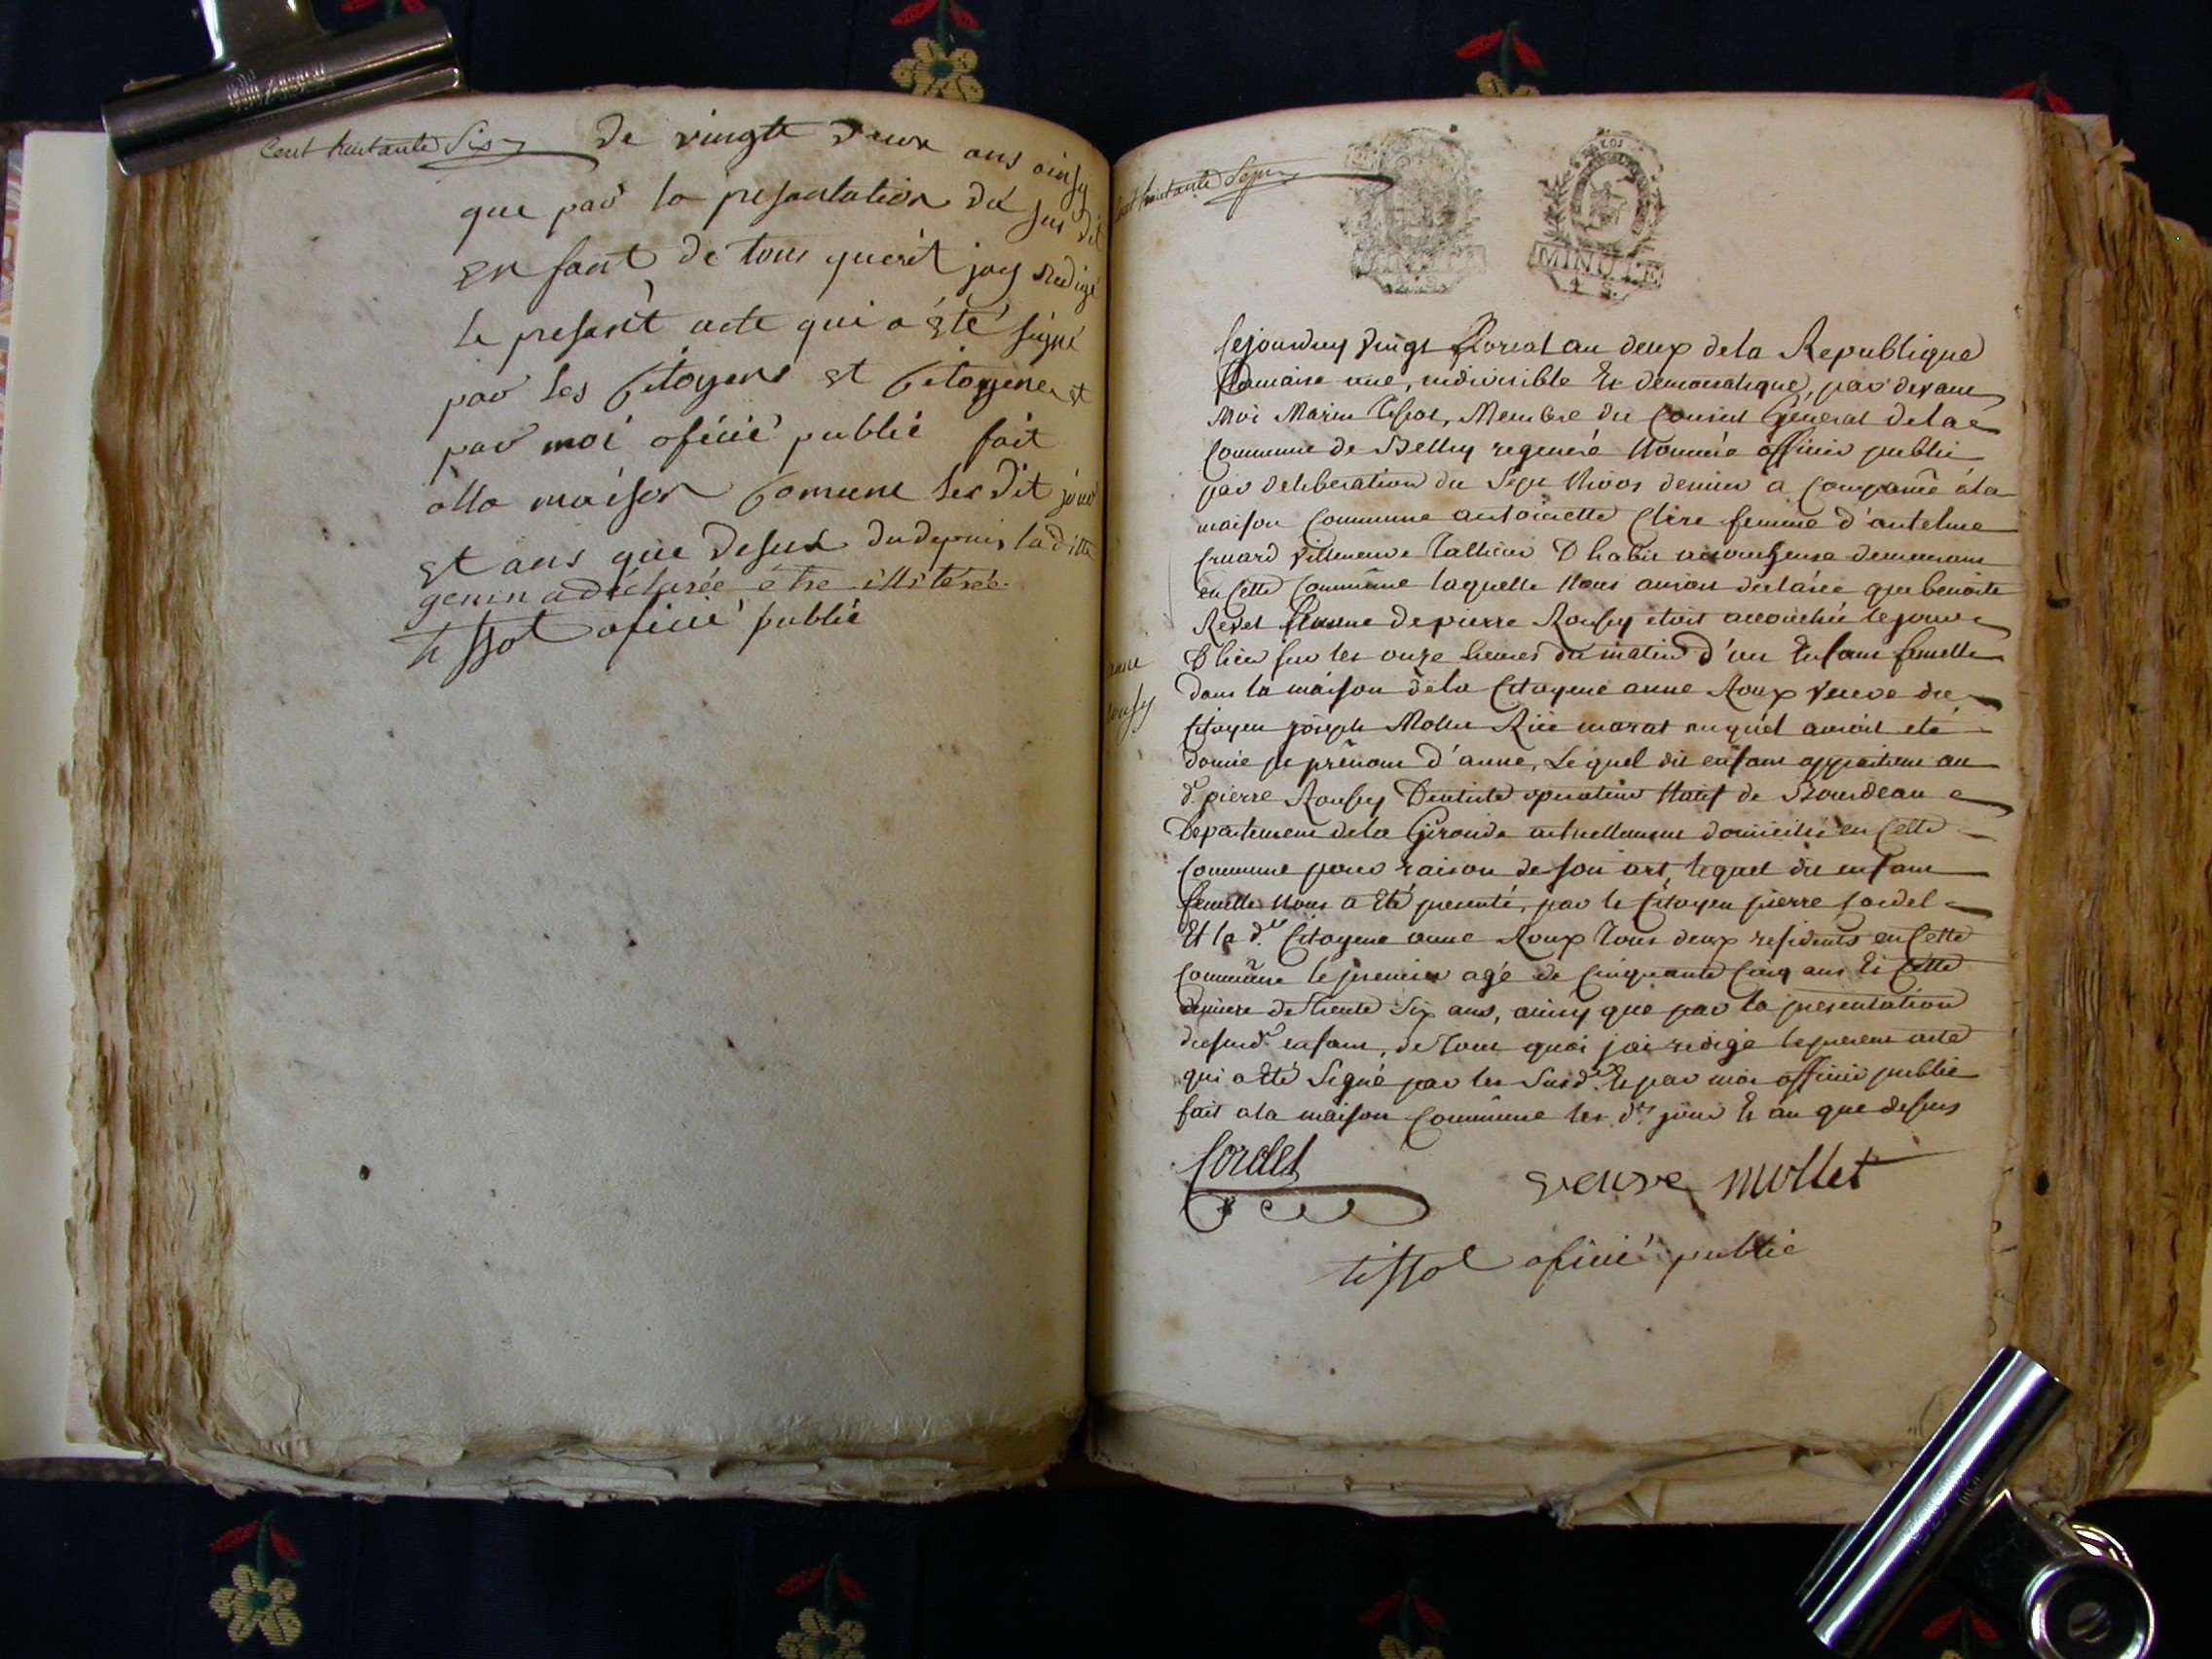 Cent huitante Six
de vingtt deux ans ainsy
que par la presantation du sus dit
enfant de tous quoit jay redigé
le presant acte qui a été signé
par les Citoyens et Citoyene et
par moi oficié publié fait
alla maison Comune les dit jour
et ans que desus du depuis la ditte
genin a déclarée être illiterée
tissot oficié publié
Cent huitante Sept
MINUTE
MINUTE
4 S.
Cejourduy vingt floreal an deux de la Republique
Romaine une, indivisible Et democratique, par devant
Moi Marin tissot, Membre du Conseil General de la
Commune de Belley regeneré Nommé officier public
par deliberation du Sept Nivos dernier a Comparue a la
maison Commune antoinette Clere femme d'antelme
Villeneuve D habit accoucheuse demeurant
en Cette Commune laquelle Nous auroit declarée que benoite
Revel femme de pierre Rousey etoit accouchée le jour
D hier sur les onze heures du matin d'un Enfant femelle
dans la maison de la Citoyene anne Roux veuve du
Citoyen joseph Mollet Rüe marat auquel auroit eté
donné le prénom d'anne, Lequel dit enfant appartient au
d. pierre Rousey Dentiste operateur Natif de Bourdeau
Departement de la Gironde actuellement domicilié en Cette
Commune pour raison de son art, lequel dit enfant
femelle Nous a Eté presenté, par le Citoyen pierre Cordel
Et la d.te Citoyene anne Roux tous deux residents en Cette
Commune le premier agé de Cinquante Cinq ans Et Cette
derniere de trente Six ans, ainsy que par la presentation
du susd. enfant, de tout quoi jai redigé le present acte
qui a Eté Signé par les Susd. Et par moi officier public
fait a la maison Commune les d.ts jour Et an que desus
anne
rousey
Cordel
veuve mollet
tissot oficié publié